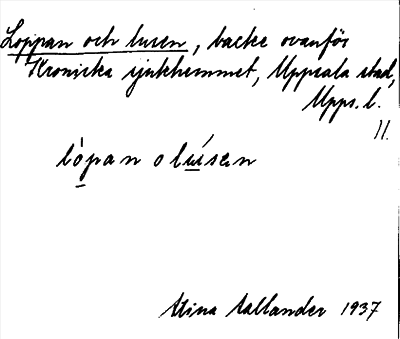 Loppan och lusen, backe ovanför
Kroniska sjukhemmet, Uppsala stad,
Upps. l.
11.
lòpan o lúsen
Stina Sallander 1937